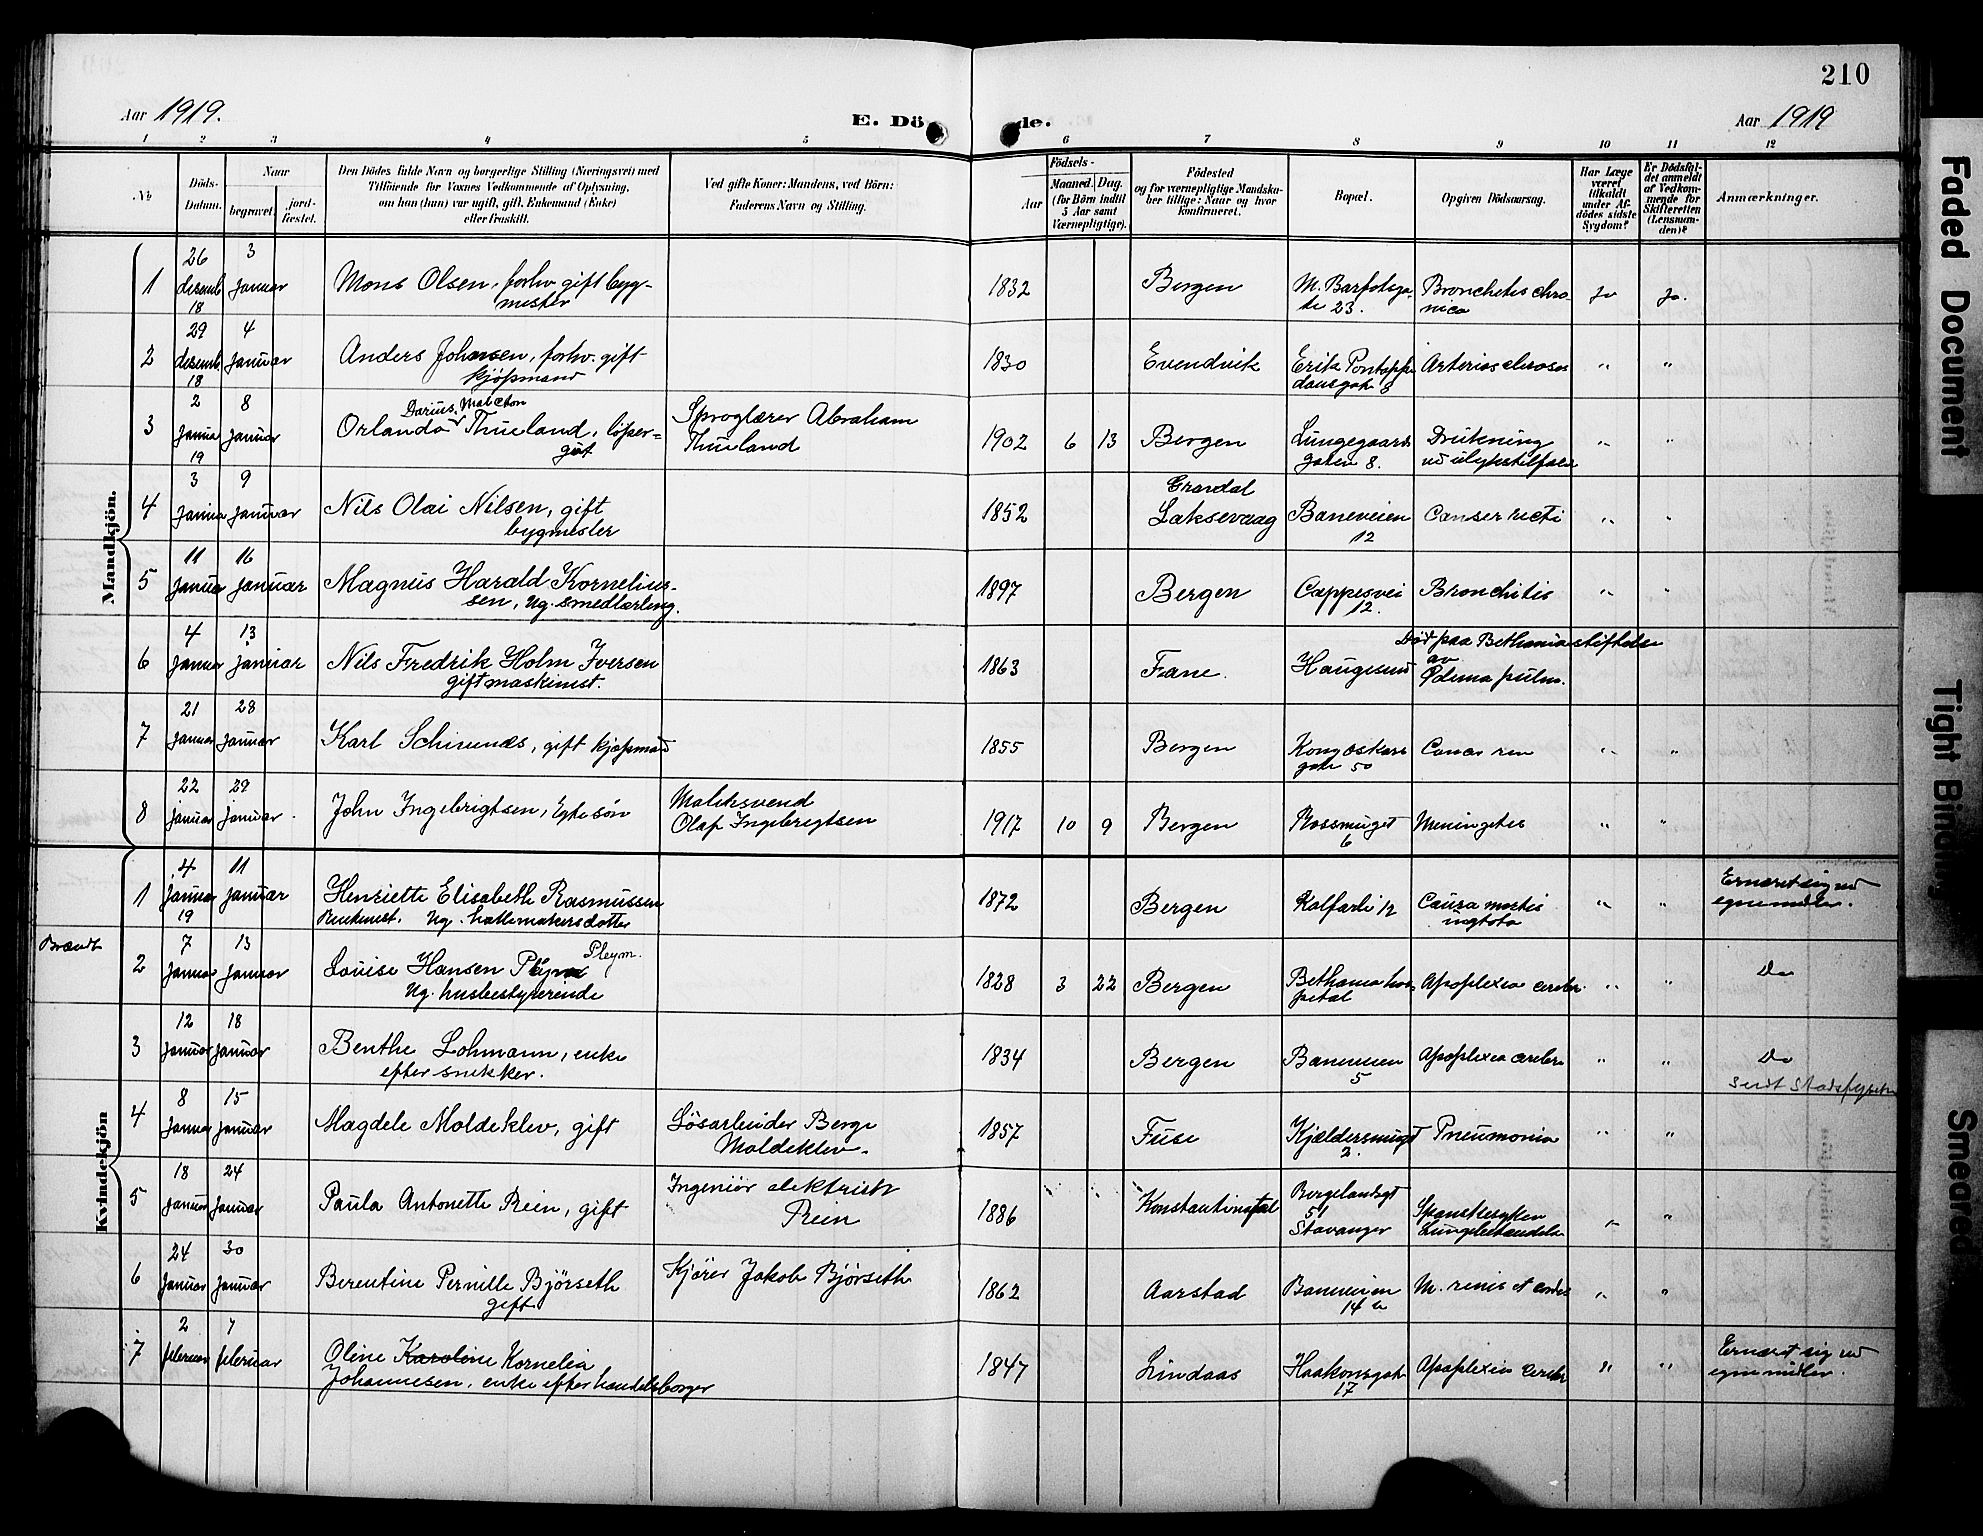 210
Aar 1919.
E. Dö de.
Aar 1919
1 2 3 4 5 6 7 8 9 10 11 12
No
Döds-
Datum.
Naar
begravet.
jord-
fæstet.
Den Dödes fulde Navn og borgerlige Stilling (Næringsvei) med
Tilföiende for Voxnes Vedkommende af Oplysning,
om han (hun) var ugift, gift, Enkemand (Enke)
eller fraskilt.
Ved gifte Koner: Mandens, ved Börn:
Faderens Navn og Stilling.
Födsels-
Aar
Maaned. Dag.
(for Börn indtil
5 Aar samt
Værnepligtige).
Födested
og for værnepligtige Mandska-
ber tillige: Naar og hvor
konfirmeret.
Bopæl.
Opgiven Dödsaarsag.
Har Læge
været
tilkaldt
under Af-
dödes sidste
Sygdom?
Er Dödsfal-
det anmeldt
af Vedkom-
mende for
Skifteretten
(Lensman-
den)?
Anmærkninger.
Mandkjön.
1
26
desemb
18
3
Januar
Mons Olsen, forhv. gift byg-
mester
1832
Bergen
M. Barfotsga-
te 23.
Bronchetis chro-
nica
Ja
Ja.
2
29
desemb
18
4
Januar
Anders Johansen, forhv. gift
kjöpmand
1830
Evendvik
Erik Pontoppi
dansgate 8
" "
3
2
Janua
19
8
Januar
Darius, Malcton
Orlando Thueland, löper-
gut
Sproglærer Abraham
Thueland
1902 6 13
Bergen
Lungegaards
gaten 8.
Drukning
" "
4
3
Janua
9
Januar
Nils Olai Nilsen, gift
bygmester
1852
Laksevaag
Baneveien
12
Canser recti
" "
5
11
Janua
16
Januar
Magnus Harald Kornelius-
sen, Ug. smedlærling.
1897
Bergen
Cappesvei
12.
Bronchitis
" "
6
4
Januar
13
Januar
Nils Fredrik Holm Iversen
gift maskinist.
1863
Fane.
Haugesund
Död paa Bethaniastiftelse
av
Ødema pulm.
7
21
Januar
28
Januar
Karl Schivenæs, gift kjøpmand
1855
Bergen
Kong Oskars
gate 50
Cancer ren
" "
8
22
januar
29
januar.
John Ingebrigtsen, Egte søn
Malersvend
Olaf Ingebregtsen
1917 10 9
Bergen
Rossmuget
6
Meningetis
" "
Kvindekjön
1
4
Januar
19
11
Januar
Henriette Elisabeth Rasmussen
Ug. hattemakersdatter
1872
Bergen
Kalfarli 12
Causa mortis
ingtota
" "
Ernæret sig ved
egne midler.
Brandt
2
7
Januar
13
Januar
Pleym.
Louise Hansen
Ug. husbestyrerinde
1828 3 22
Bergen
Bethania hos
pital
Apoplexia cerebr.
" "
Do
3
12
Januar
18
Januar
Benthe Lohmann, enke
efter snekker.
1834
Bergen
Baneveien
5
Apoplexia cerebr
" "
Do
4
8
Januar
15
Januar
Magdele Moldeklev, gift
Løsarbeider Berge
Moldeklev.
1857
Fuse
Kjældersmugt
2.
Pneumonia
" "
Sendt Stadsfysik
5
18
Januar
24
Januar
Paula Antonette Rein, gift
Ingeniør elektrisk
Rein
1886
Konstantinopel
Bergelandsgt
51
Stavanger
Spanskesyken
Lungebetændelse
" "
6
24
Januar
30
Januar
Berentine Pernille Björseth
gift
Kjører Jakob Bjørseth
1862
Aarstad
Baneveien
14 b
" "
7
2
februar
7
februar
Oline Karoline Kornelia
Johannesen, enke efter handelsborger
1847
Lindaas
Haakonsgat
17
Apoplexia cerebr
" "
Ernæret sig ved
egne midler.
Faded Document
Tight Binding
Smeared